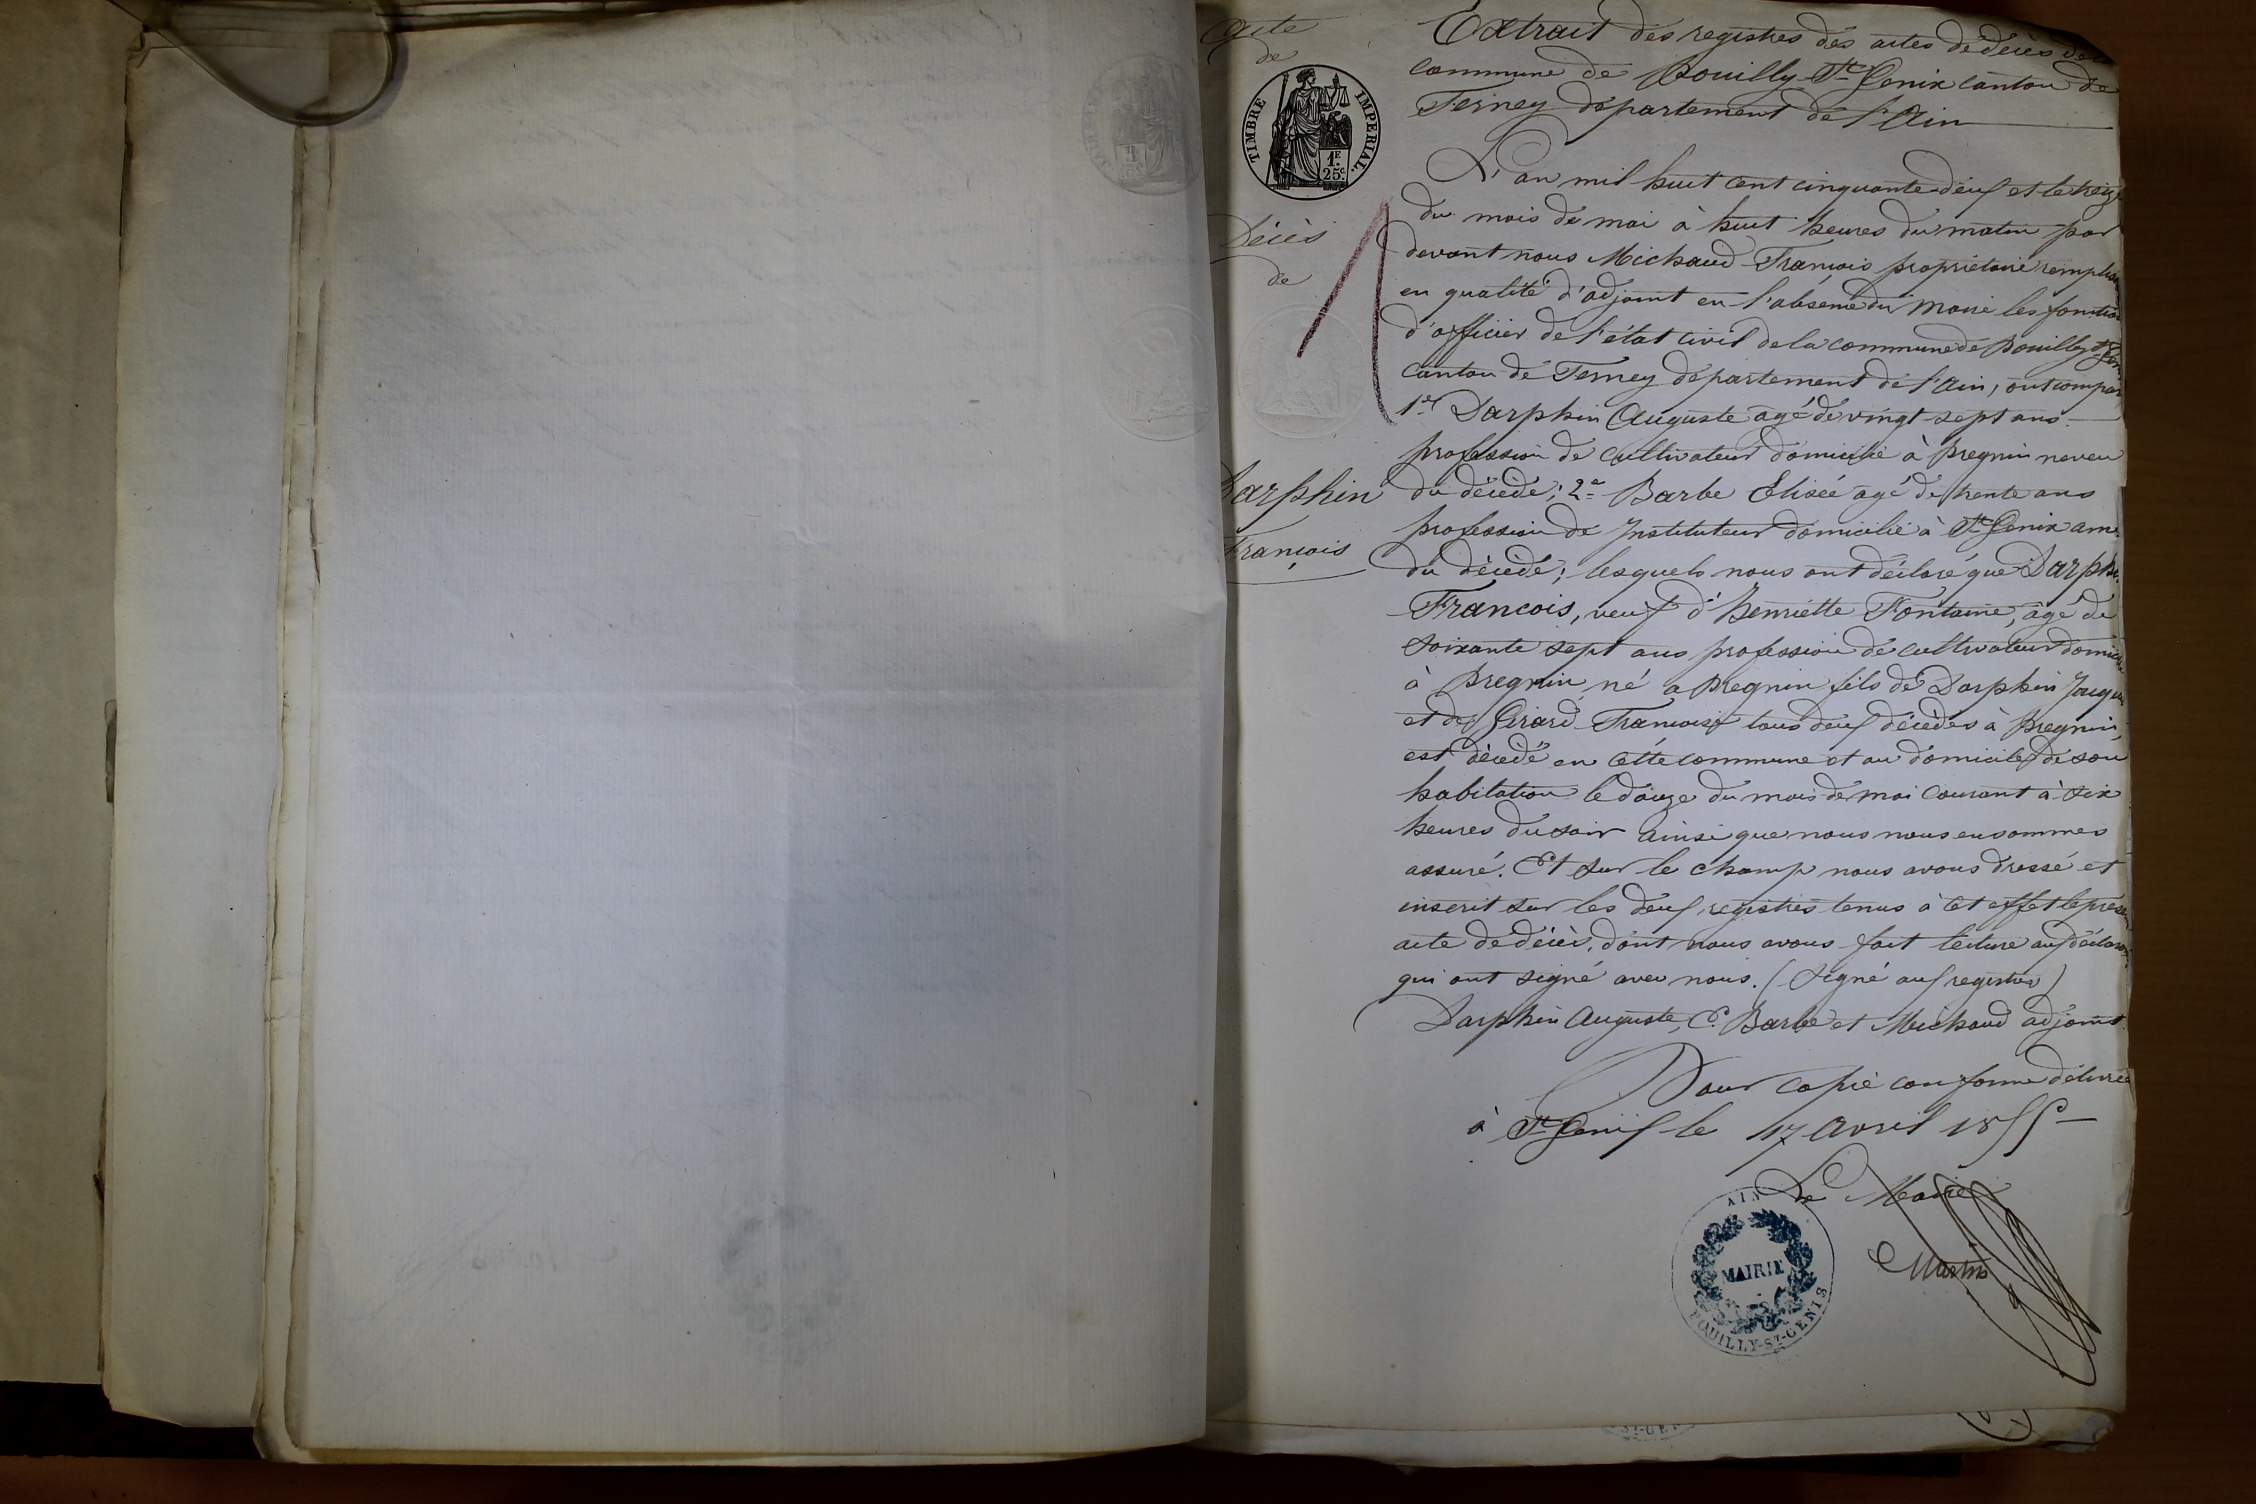 Acte
de
TIMBRE IMPERIAL.
1F.
25c.
Décès
de
Darphin
François
Extrait des registres des actes de décès de la
commune de Pouilly-St Genix canton de
Ferney département de l'Ain
L'an mil huit cent cinquante deux et le treize
du mois de mai à huit heures du matin par
devant nous Michaud François propriétaire remplissant
en qualité d'adjoint en l'absence du Maire les fonctions
d'officier de l'état civil de la commune de Pouilly St Genix
canton de Ferney département de l'Ain, ont comparu
1er Darphin Auguste agé de vingt-sept ans
profession de cultivateur domicilié à Pregnin neveu
du décédé; 2e Barbe Elisée agé de trente ans
profession de Instituteur domicilié à St Genix ami
du décédé; lesquels nous ont déclaré que Darphin
Francois, veuf d'Henriette Fontaine, âgé de
soixante sept ans profession de cultivateur domicilié
à Pregnin né a Pregnin fils de Darphin Jacques
et de Girard Françoise tous deux décédés à Pregnin,
est décédé en cette commune et au domicile de son
habitation le douze du mois de mai courant à six
heures du soir ainsi que nous nous en sommes
assuré. Et sur le champ nous avons dressé et
inscrit sur les deux registres tenus à cet effet le présent
acte de décès, dont nous avons fait lecture aux déclarants
qui ont signé avec nous. (Signé aux registres)
Darphin Auguste, E. Barbe et Michaud adjoint
Pour copie conforme délivrée
à St Genix le 17 Avril 1855
Le Maire
Martin
AIN
MAIRIE
POUILLY-ST-GENIS